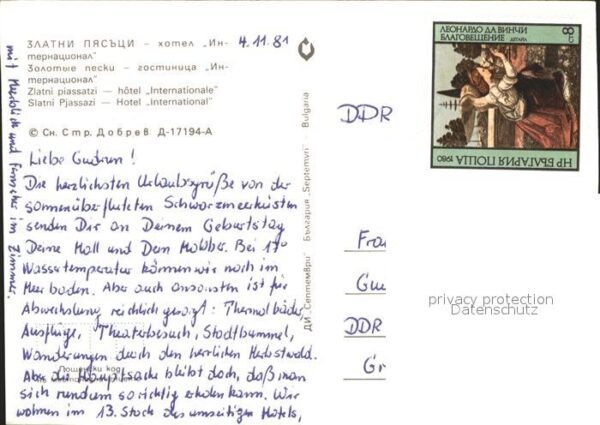 ЗЛАТНИ ПЯСЪЦИ – хотел „Ин-
тернационал"
Золотые пески – гостиница „Ин-
тернационал"
Zlatni piassatzi — hôtel „Internationale"
Slatni Pjassazi — Hotel „International"
© Сн. Стр. Добрев Д-17194-А
4.11.81
Liebe Gudrun!
Die herzlichsten Urlaubsgrüße von der
sonnenüberfluteten Schwarzmeerküste
senden Dir an Deinem Geburtstag
Deine und Dein Bei 17°
Wassertemperatur können wir noch im
Meer baden. Aber auch ansonsten ist für
Abwechslung reichlich gesorgt: Thermalbäder,
Ausflüge, Theaterbesuch, Stadtbummel,
Wanderungen durch den herrlichen Herbstwald.
Aber die Hauptsache bleibt doch, daß man
sich rundum so richtig erholen kann. Wir
wohnen im 13. Stock des umseitigen Hotels,
mit Meerblick und Fernseher im Zimmer.
Пощенски код
ДИ „Септември" България „Septemvri" Bulgaria
ЛЕОНАРДО ДА ВИНЧИ
БЛАГОВЕЩЕНИЕ ДЕТАЙЛ
8 СТ
НР БЪЛГАРИЯ ПОЩА 1980
DDR
Fra
Gu
DDR
Gr
privacy protection
Datenschutz